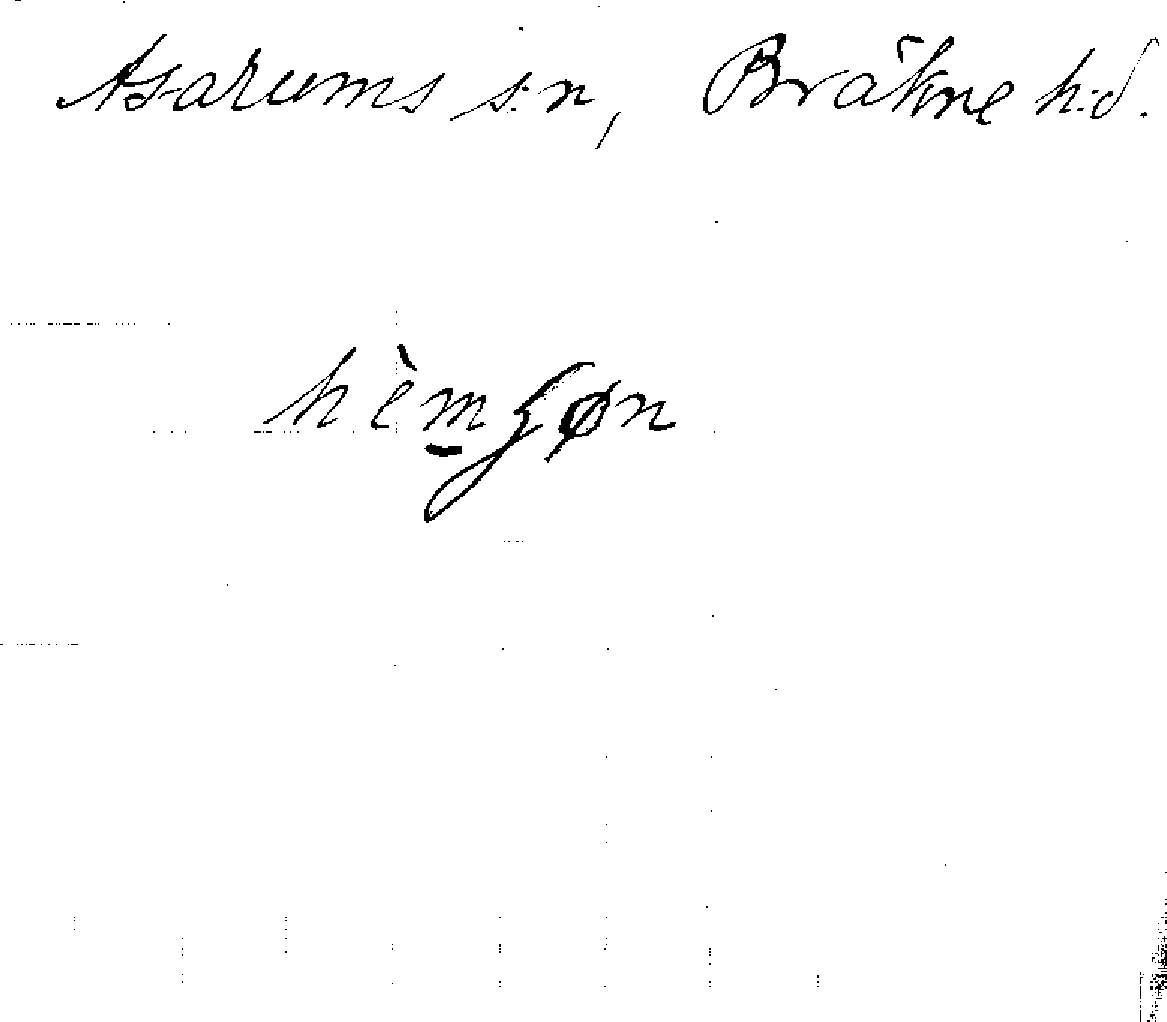 Asarums s:n, Bräkne h:d.
hèm̱ʒøn